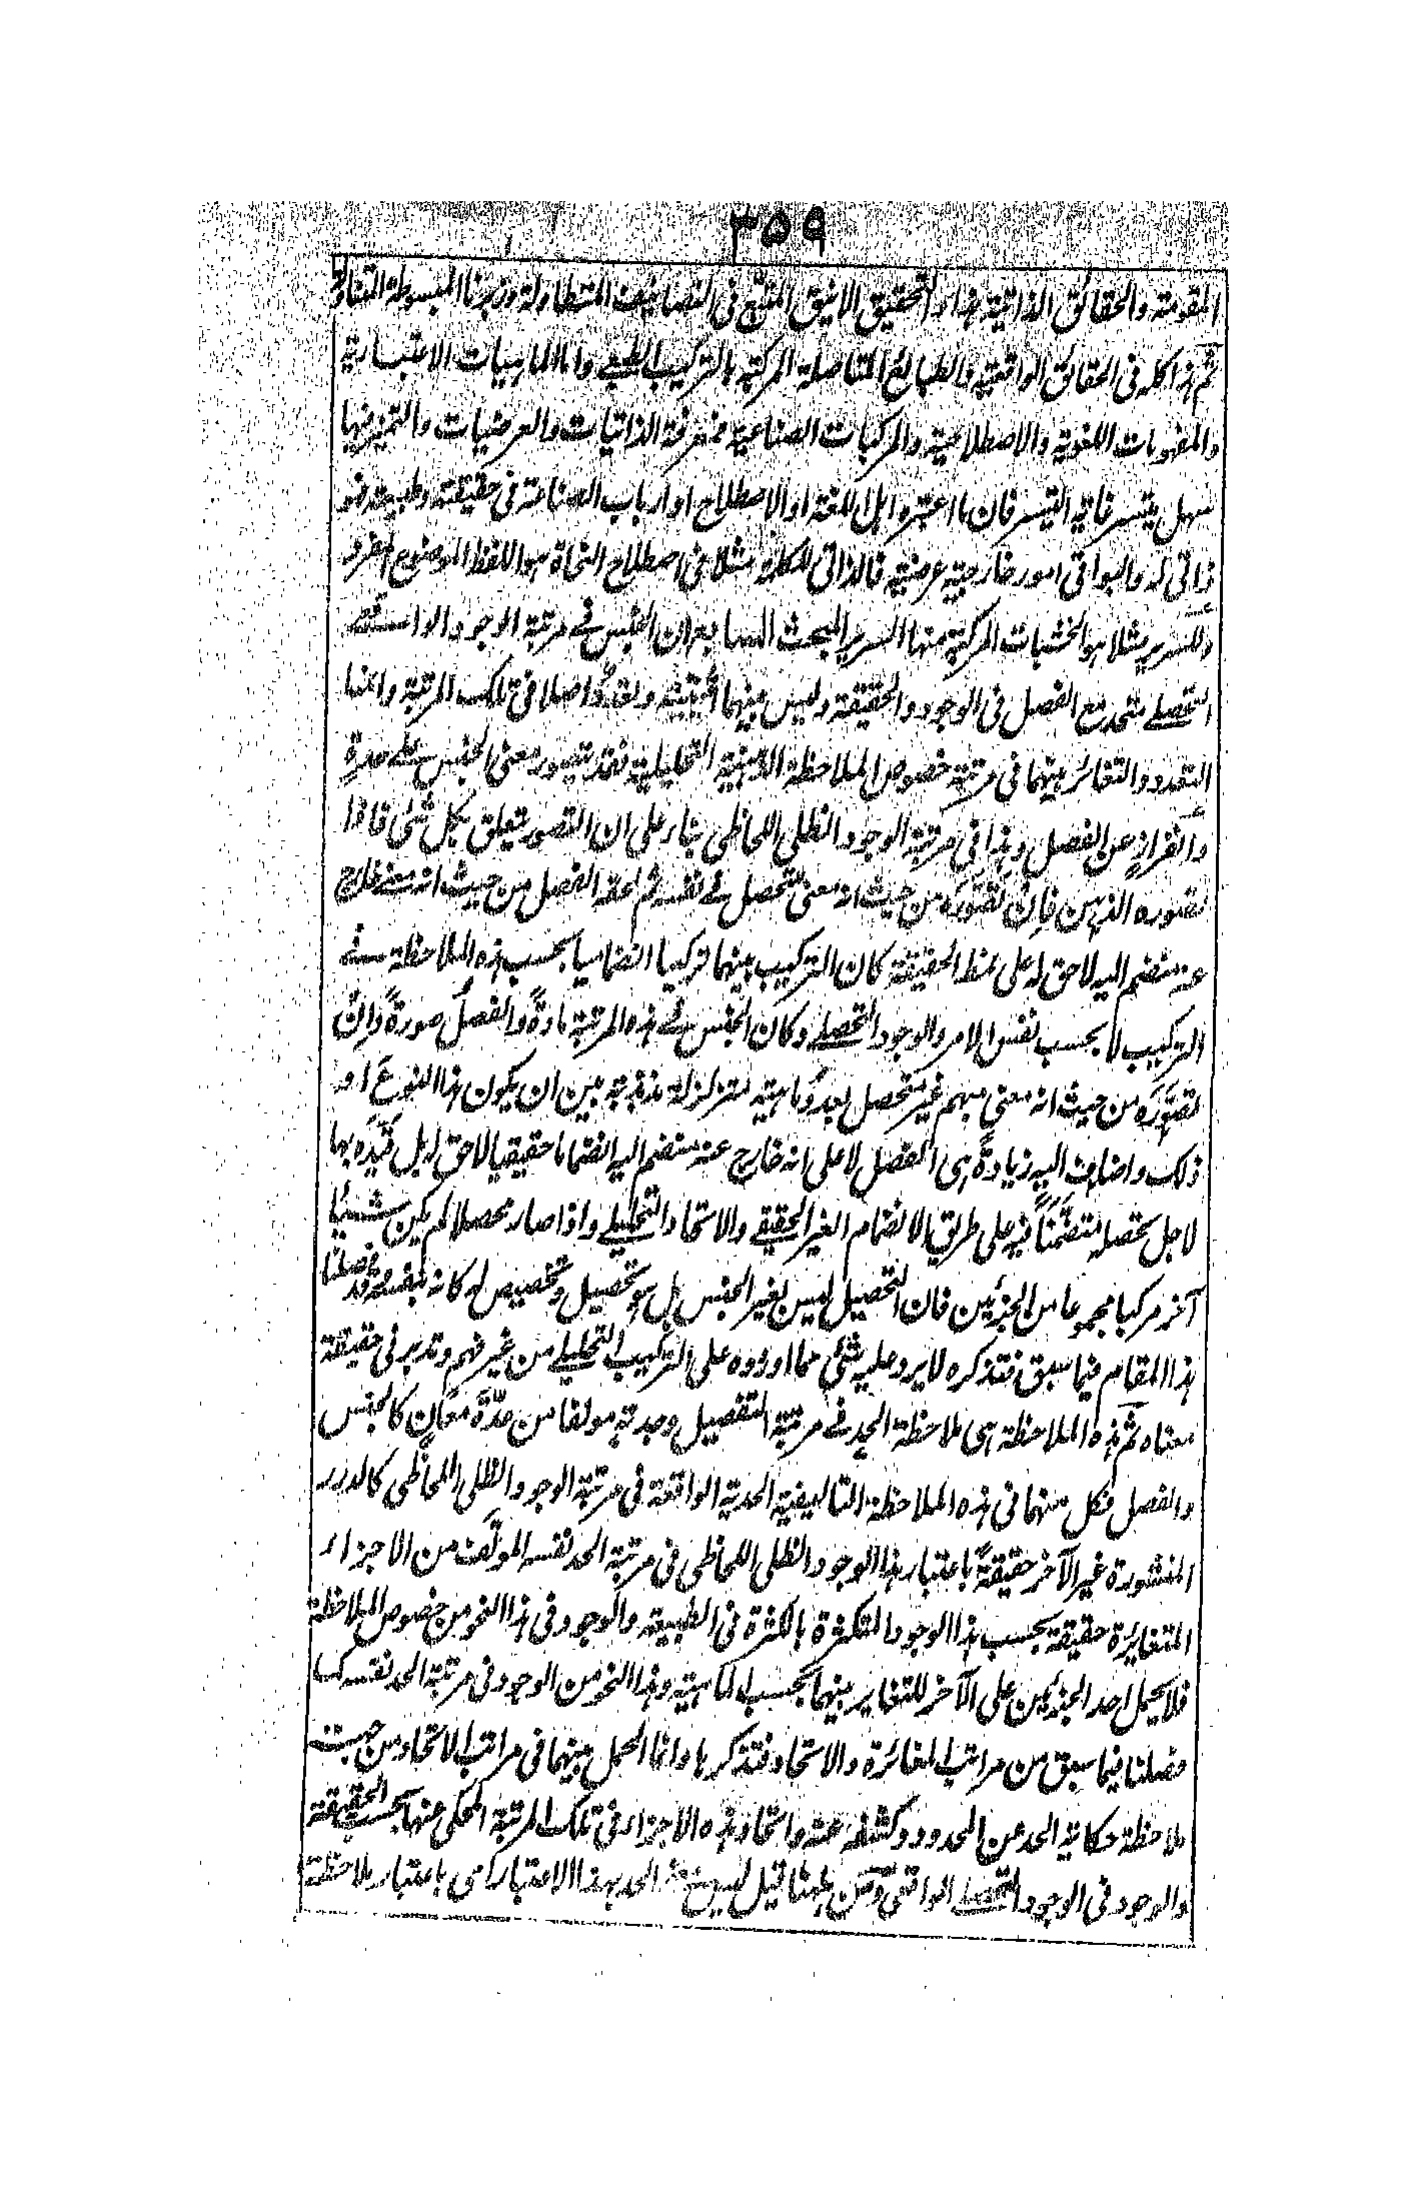 ٣٥٩
المقومة والحقائق الذاتية هذا والتحقيق الانيق المتبع فى التصانيف المتطاولة وزبرنا المبسوطة
ثم هذا كله فى الحقائق الواقعية والطبائع المتاصلة المركبة بالتركيب الطبعى واما الماهيات الاعتبارية
والمفهومات اللغوية والاصطلاحية والمركبات الصناعية فمعرفة الذاتيات والعرضيات والتميز بينها
سهل يتيسر غاية التيسر فان ما اعتبره اهل اللغة او الاصطلاح او ارباب الصناعة فى حقيقته وطبيعته فهو
ذاتى له والبواقى امور خارجية عرضية فالذاتى للكلمة مثلا فى اصطلاح النحاة هو اللفظ الموضوع المفرد
وللسرير مثلا هو الخشبات المركبة منها السرير المبحث السابع ان الجنس فى مرتبة الوجود الواقعى
التحصلى متحد مع الفصل فى الوجود والحقيقة وليس بينهما اثنينية وتعدد اصلا فى تلك المرتبة وانما
التعدد والتغائر بينهما فى مرتبة خصوص الملاحظة الذهنية التحليلية فقد يتصور معنى الجنس على حدة
وانفراز عن الفصل وهذا فى مرتبة الوجود الظلى اللحاظى بناء على ان التصور يتعلق بكل شئ فاذا
تصوره الذهن فان تصوره من حيث انه معنى متحصل فى نفسه ثم لحقه الفصل من حيث انه معنى خارج
عنه منضم اليه لاحق له على نمط الحقيقة كان التركيب بينهما تركيبا انضماميا بحسب هذه الملاحظة فى
التركيب لا بحسب نفس الامر والوجود التحصلى وكان الجنس فى هذه المرتبة مادة والفصل صورة وان
تصوره من حيث انه معنى مبهم غير متحصل بعد وماهيته متزلزلة مذبذبة بين ان يكون هذا النوع او
ذلك واضاف اليه زيادة هى الفصل لا على انه خارج عنه منضم اليه انضماما حقيقيا لاحق له بل قيده بها
لاجل تحصله متضمنا فيه على طريق الانضمام الغير الحقيقى والاتحاد التحليلى واذا صار محصلا لم يكن شيئا
آخر مركبا مجموعا من الجزئين فان التحصيل ليس بغير الجنس بل هو تحصيل وتخصيص له كانه بنفسه وقد فصلنا
هذا المقام فيما سبق فتذكره لا يرد عليه شئ مما اوردوه على التركيب التحليلى من غير فهم وتدبر فى حقيقة
معناه ثم هذه الملاحظة هى ملاحظة الحد فى مرتبة التفصيل وجدته مولفا من عدة معان كالجنس
والفصل فكل منهما فى هذه الملاحظة التاليفية الحدية الواقعة فى مرتبة الوجود الظلى اللحاظى كالدرر
المنثورة غير الآخر حقيقة باعتبار هذا الوجود الظلى اللحاظى فى مرتبة الحد نفسه المولف من الاجزاء
المتغايرة حقيقة بحسب هذا الوجود المتكثرة بالكثرة فى الطبيعة والوجود فى هذا النحو من خصوص الملاحظة
فلا يحمل احد الجزئين على الآخر للتغاير بينهما بحسب الماهية وهذا النحو من الوجود فى مرتبة الحد نفسه كما
فصلنا فيما سبق من مراتب المغائرة والاتحاد فتذكرها وانما الحمل بينهما فى مراتب الاتحاد من جهت
ملاحظة حكاية الحد عن المحدود وكشفه عنه واتحاد هذه الاجزاء فى تلك المرتبة المحكى عنها بحسب الحقيقة
والوجود فى الوجود التحصلى الواقعى ومن ههنا قيل ليس الحد بهذا الاعتبار اى باعتبار ملاحظة